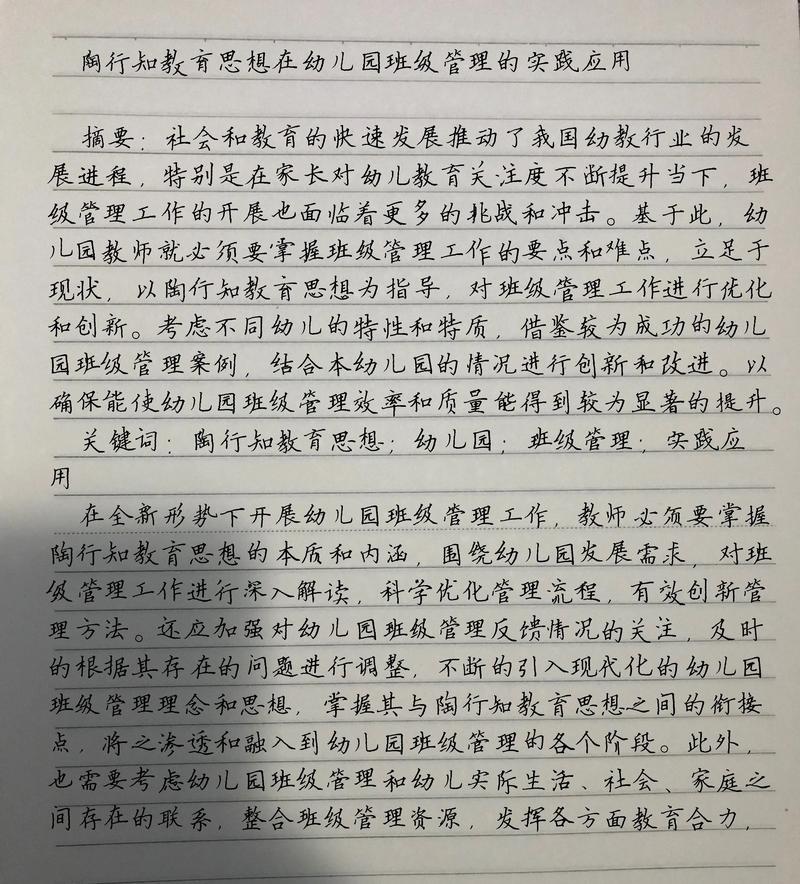 陶行知教育思想在幼儿园班级管理的实践应用
摘要：社会和教育的快速发展推动了我国幼教行业的发
展进程，特别是在家长对幼儿教育关注度不断提升当下，班
级管理工作的开展也面临着更多的挑战和冲击。基于此，幼
儿园教师就必须要掌握班级管理工作的要点和难点，立足于
现状，以陶行知教育思想为指导，对班级管理工作进行优化
和创新。考虑不同幼儿的特性和特质，借鉴较为成功的幼儿
园班级管理案例，结合本幼儿园的情况进行创新和改进。以
确保能使幼儿园班级管理效率和质量能得到较为显著的提升。
关键词：陶行知教育思想；幼儿园；班级管理；实践应
用
在全新形势下开展幼儿园班级管理工作，教师必须要掌握
陶行知教育思想的本质和内涵，围绕幼儿园发展需求，对班
级管理工作进行深入解读，科学优化管理流程，有效创新管
理方法。还应加强对幼儿园班级管理反馈情况的关注，及时
的根据其存在的问题进行调整，不断的引入现代化的幼儿园
班级管理理念和思想，掌握其与陶行知教育思想之间的衔接
点，将之渗透和融入到幼儿园班级管理的各个阶段。此外，
也需要考虑幼儿园班级管理和幼儿实际生活、社会、家庭之
间存在的联系，整合班级管理资源，发挥各方面教育合力，